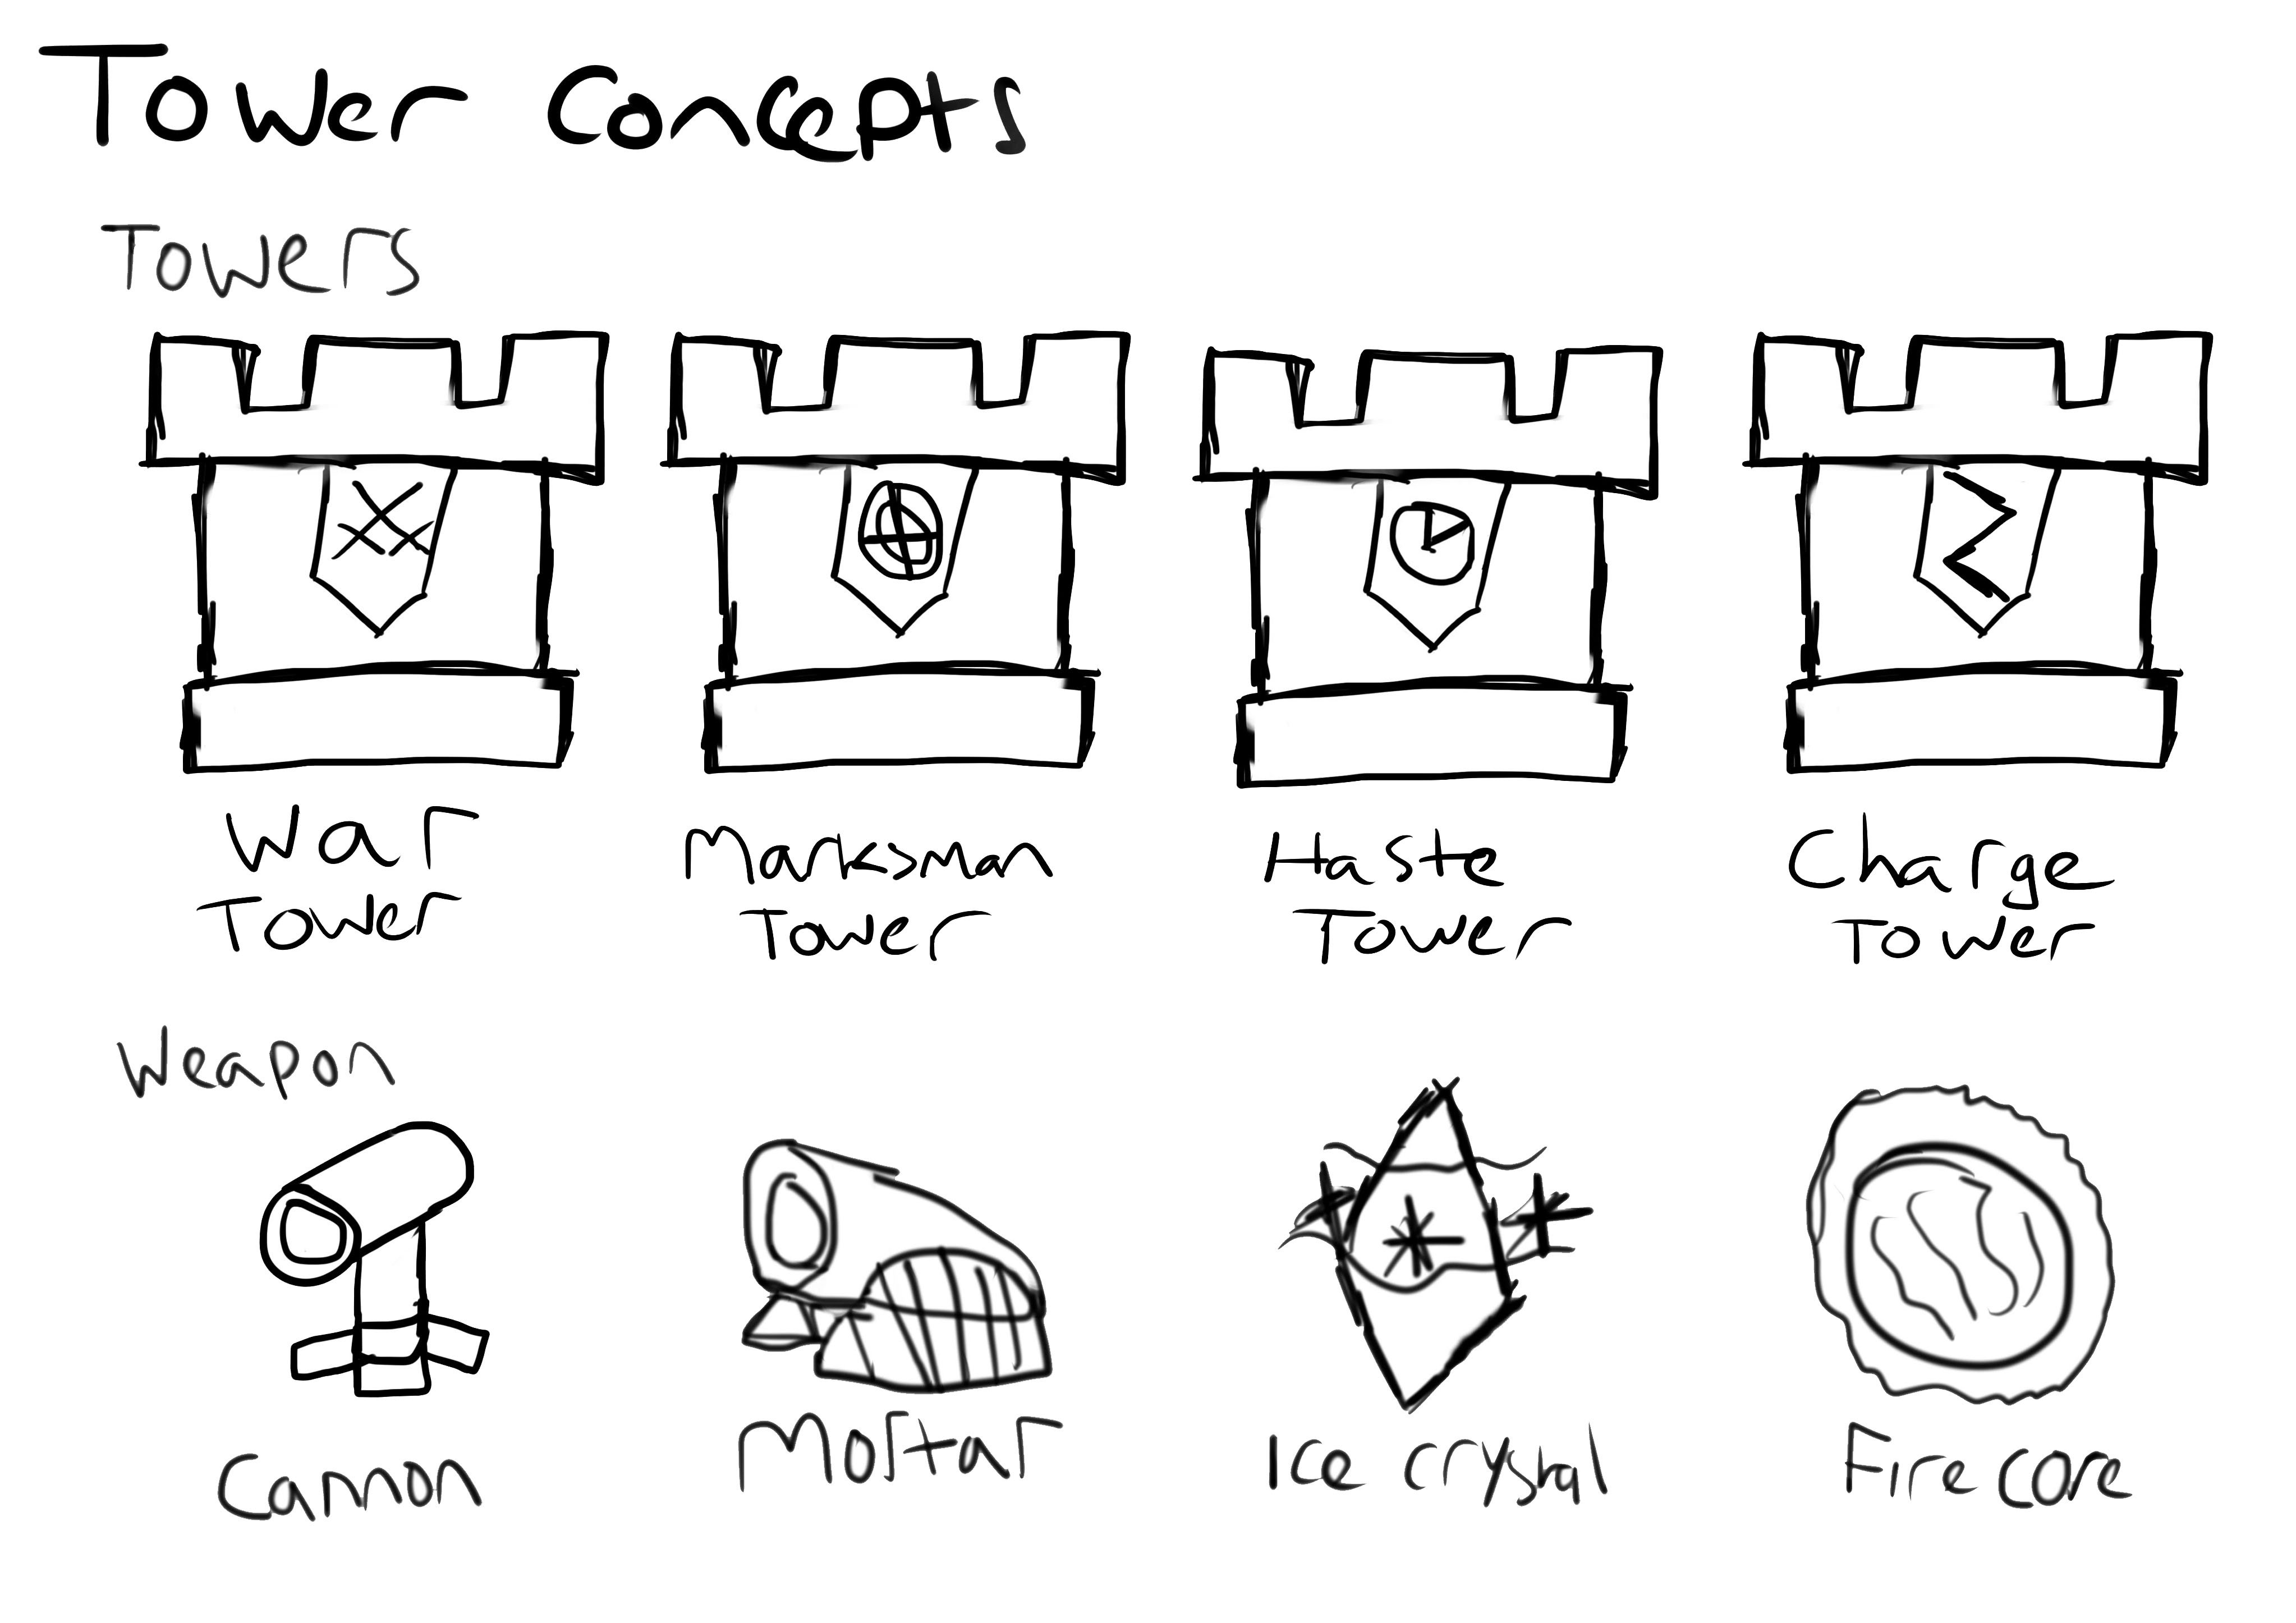 Tower Concepts
Towers
War
Tower
Marksman
Tower
Haste
Tower
Charge
Tower
Weapon
Cannon
Mortar
Ice crystal
Fire core